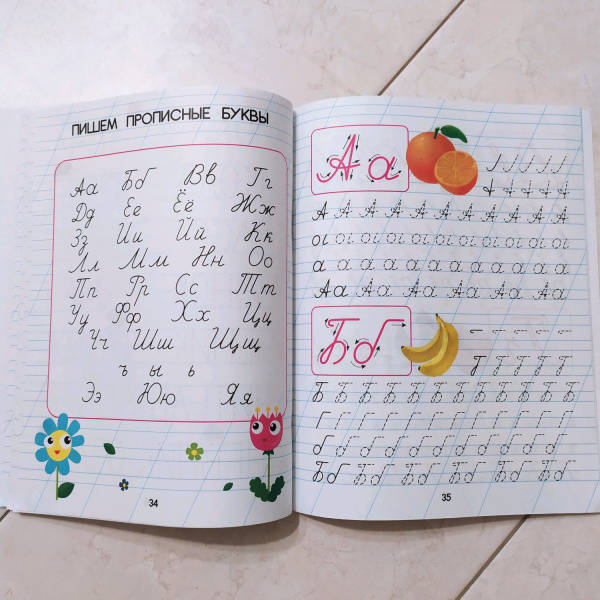 ПИШЕМ ПРОПИСНЫЕ БУКВЫ
Аа Бб Вв Гг
Дд Ее Ёё Жж
Зз Ии Йй Кк
Лл Мм Нн Оо
Пп Рр Сс Тт
Уу Фф Хх Цц
Чч Шш Щщ
ъ ы ь
Ээ Юю Яя
34
Аа
А А А А А А А А А А А
а а а а а а а а а а а
Аа Аа Аа Аа Аа Аа
Бб
Б Б Б Б Б Б Б Б Б Б Б
б б б б б б б б б б
Бб Бб Бб Бб Бб Бб
35